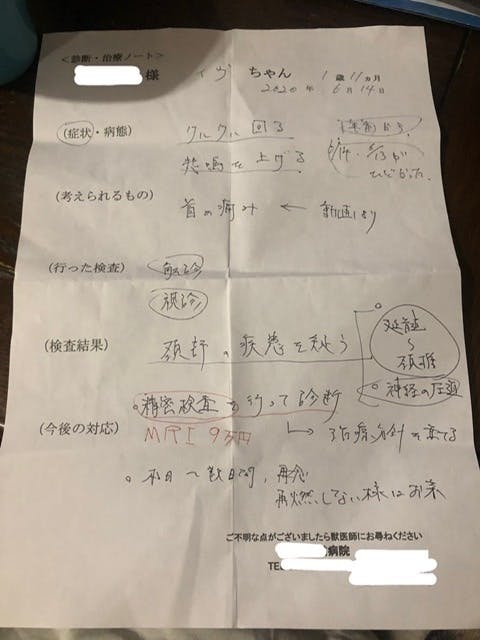 <診断・治療ノート>
様 イヴ ちゃん 1歳11ヵ月
2020年 6月14日
(症状・病態) クルクル回る
悲鳴を上げる
6/14・6/13が
ひどかった
(考えられるもの) 首の痛み ← 動画より
(行った検査) 触診
視診
(検査結果) 頚部の疾患を疑う
延髄
〜
頚椎
神経の圧迫
精密検査を行って診断
(今後の対応) MRI 9万円 → 治療方針を立てる
本日〜数日間、
再燃しない様にお薬
ご不明な点がございましたら獣医師にお尋ねください
病院
TEL